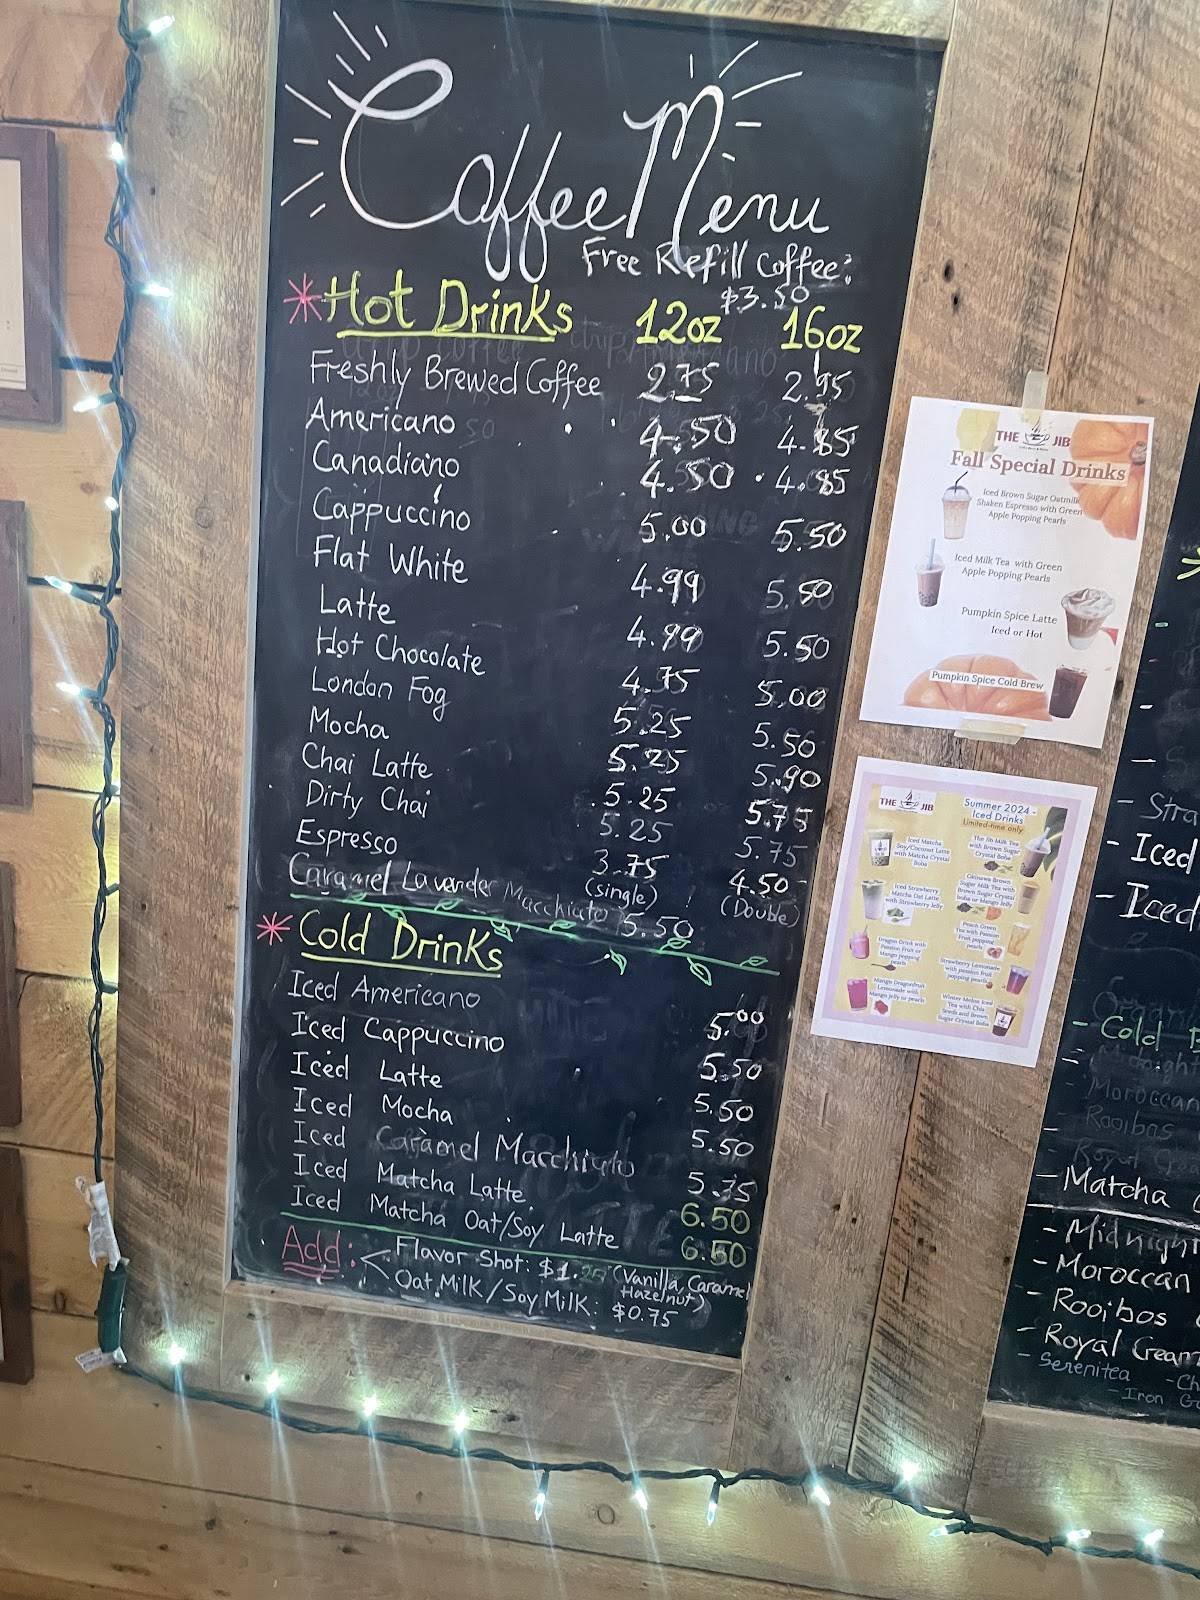 Coffee Menu
Free Refill Coffee:
$3.50
*Hot Drinks 12oz 16oz
Freshly Brewed Coffee 2.75 2.95
Americano 4.50 4.85
Canadiano 4.50 4.85
Cappuccino 5.00 5.50
Flat White 4.99 5.50
Latte 4.99 5.50
Hot Chocolate 4.75 5.00
London Fog 5.25 5.50
Mocha 5.25 5.90
Chai Latte 5.25 5.75
Dirty Chai 5.25 5.75
Espresso 3.75 4.50
(single) (Double)
Caramel Lavender Macchiato 5.50
*Cold Drinks
Iced Americano 5.00
Iced Cappuccino 5.50
Iced Latte 5.50
Iced Mocha 5.50
Iced Caramel Macchiato 5.75
Iced Matcha Latte 6.50
Iced Matcha Oat/Soy Latte 6.50
Add: Flavor Shot: $1. (Vanilla, Caramel
Hazelnut)
Oat Milk/Soy Milk: $0.75
THE JIB
Fall Special Drinks
Iced Brown Sugar Oatmilk
Shaken Espresso with Green
Apple Popping Pearls
Iced Milk Tea with Green
Apple Popping Pearls
Pumpkin Spice Latte
Iced or Hot
Pumpkin Spice Cold Brew
THE JIB
Summer 2024 -
Iced Drinks
Limited-time only
Iced Matcha
Soy/Coconut Latte
with Matcha Crystal
Boba
The Jib Milk Tea
with Brown Sugar
Crystal Boba
Iced Strawberry
Matcha Oat Latte
with Strawberry Jelly
Okinawa Brown
Sugar Milk Tea with
Brown Sugar Crystal
boba or Mango Jelly
Dragon Drink with
Passion Fruit or
Mango popping
pearls
Peach Green
Tea with Passion
Fruit popping
pearls
Mango Dragonfruit
Lemonade with
Mango Jelly or pearls
Strawberry Lemonade
with passion fruit
popping pearls
Winter Melon Iced
Tea with Chia
Seeds and Brown
Sugar Crystal Boba
- Stra
- Iced
- Iced
- Cold
Midnight
Moroccan
Rooibos
- Matcha
- Midnight
- Moroccan
- Rooibos
- Royal Cream
- Serenitea - Ch
- Iron G